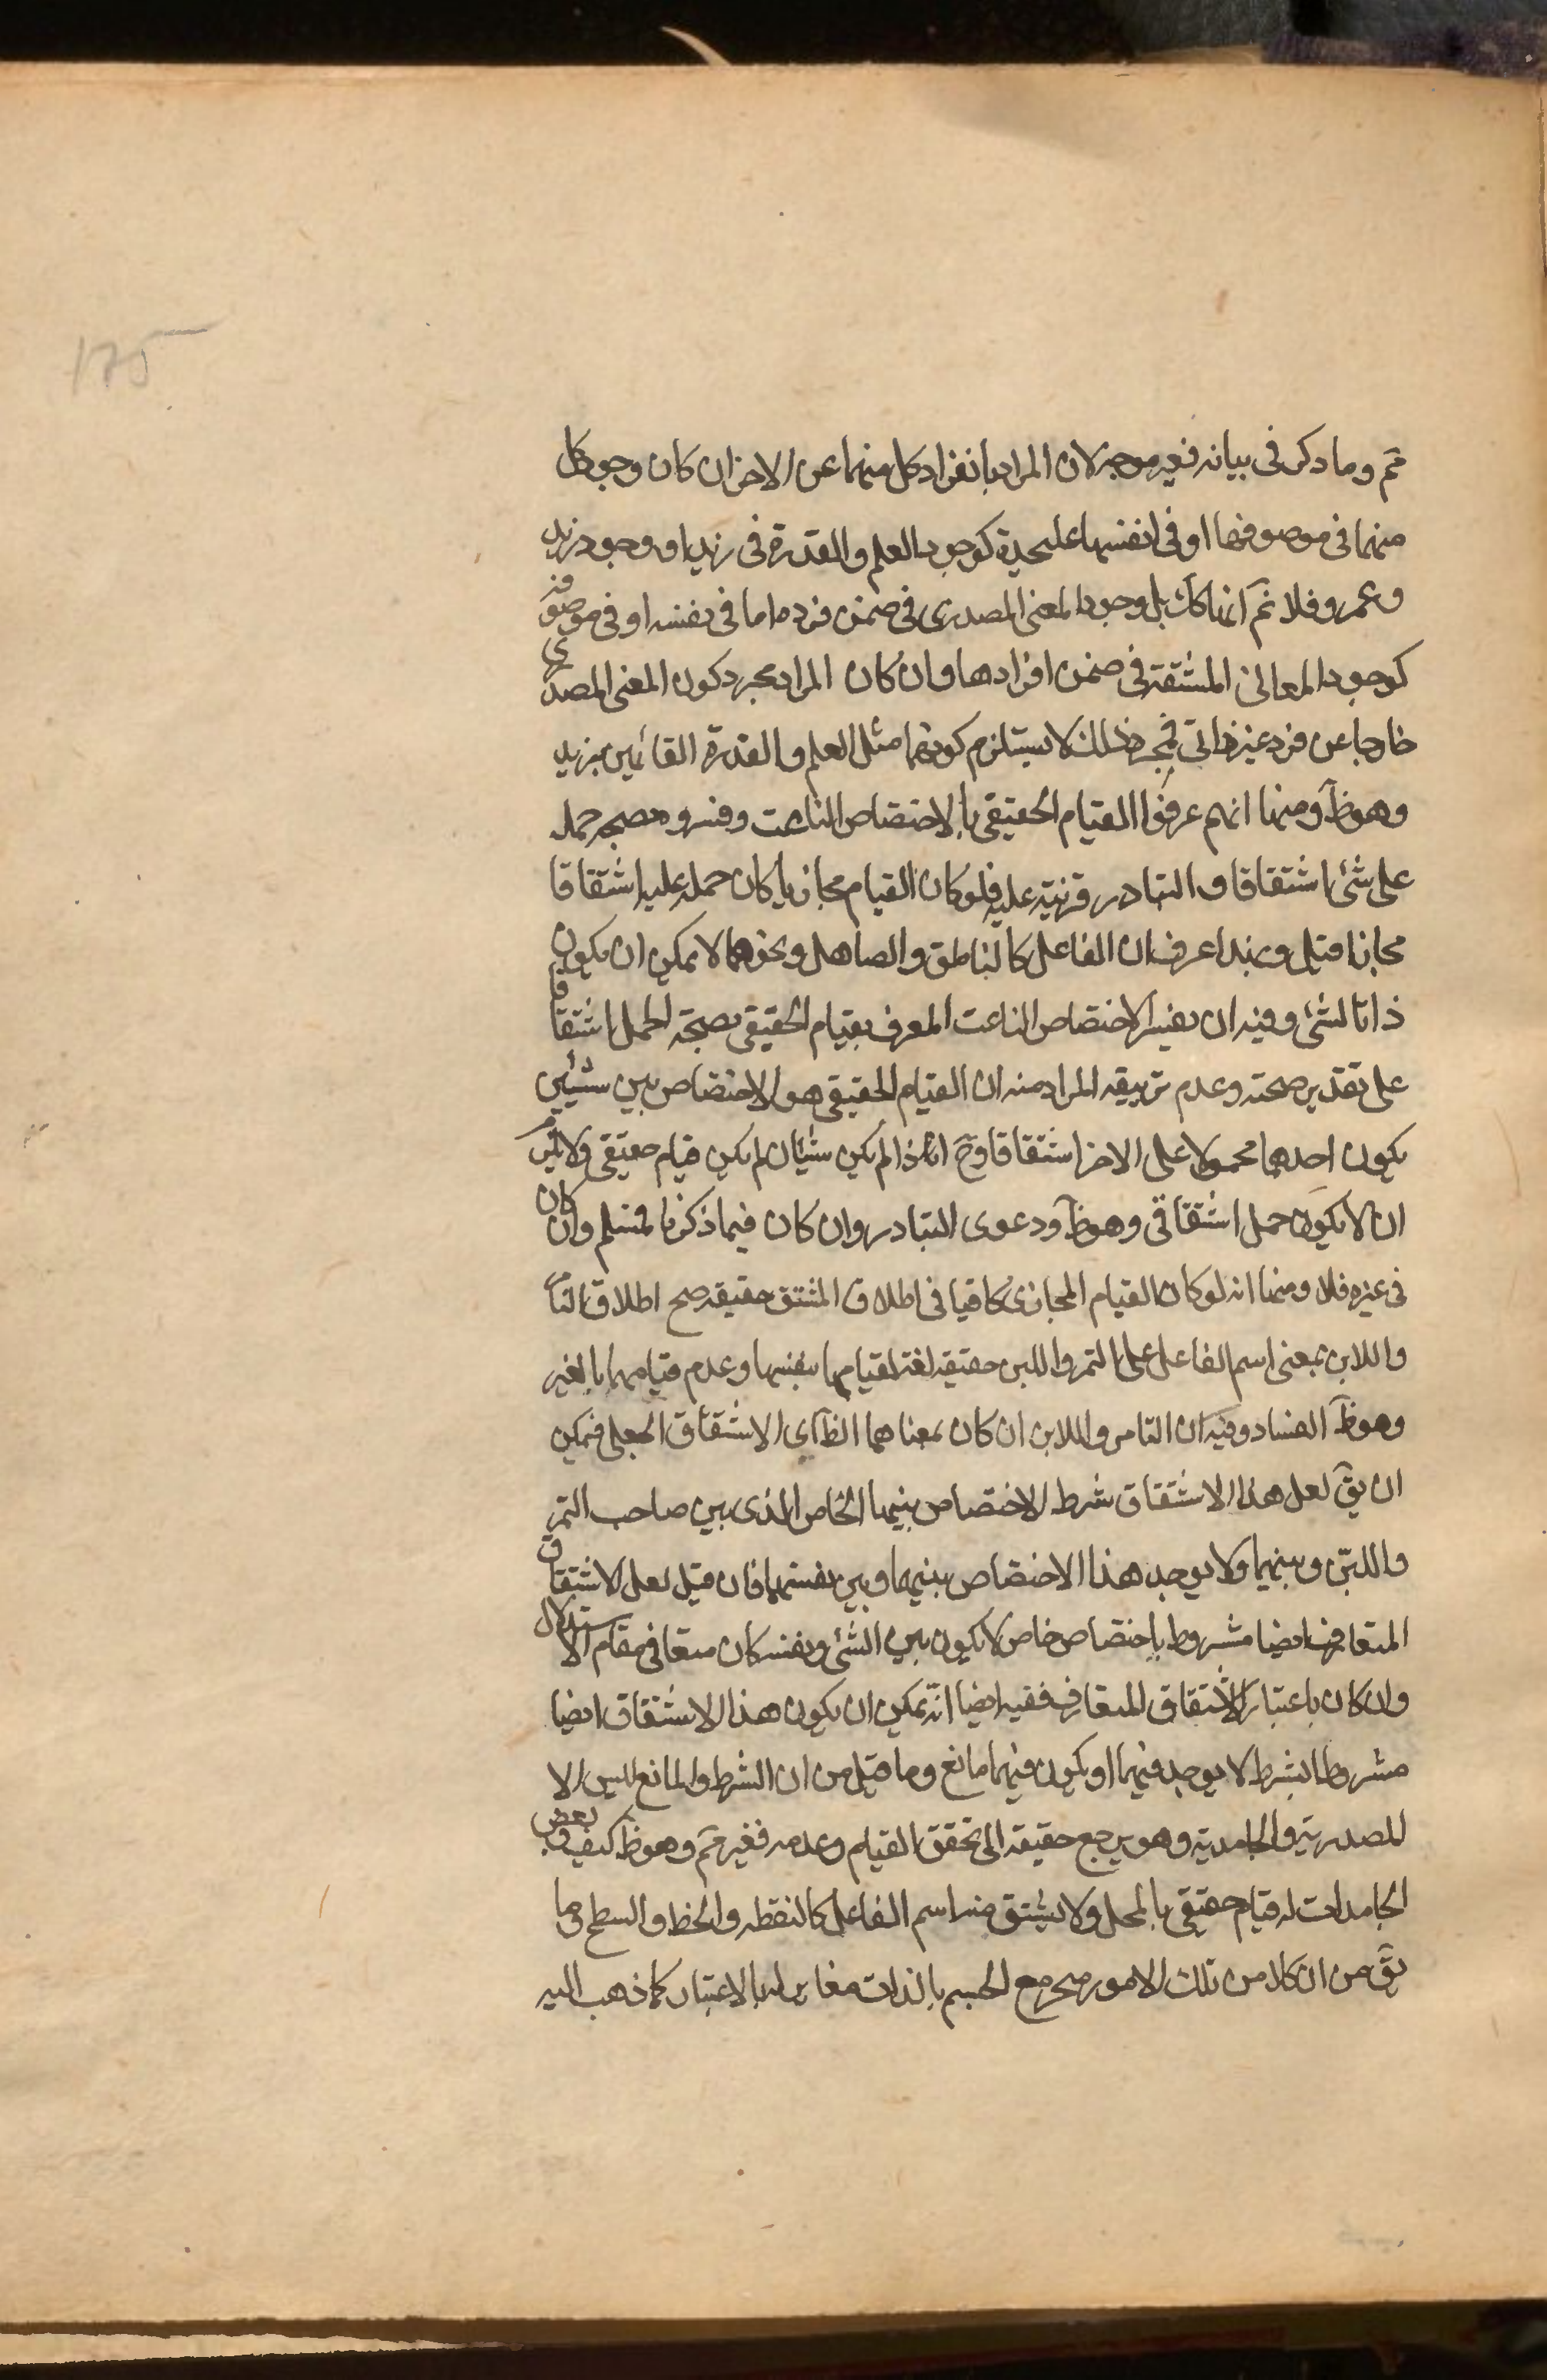 175
ثم وما ذكر في بيانه فغير موجه لان المراد بانفراد كل منهما عن الاخر ان كان وجود كل
منهما في موصوفها او في انفسها عليحدة كوجود العلم والقدرة في زيد او وجود زيد
وعمرو فلا ثم انها كك بل وجود المعنى المصدرى في ضمن فرده اما في نفسه او في موصوفه
كوجود المعانى المشتقة في ضمن افرادها وان كان المراد مجرد كون المعنى المصدرى
خارجا عن فرد غير ذاتى فمجرد ذلك لا يستلزم كونهما مثل العلم والقدرة القائمين بزيد
وهو ظ ومنها انهم عرفوا القيام الحقيقى بالاختصاص الناعت وفسروه بصحة حمله
على شئ اشتقاقا والتبادر قرينة عليه فلو كان القيام مجازيا كان حمله عليه اشتقاقا
مجازا قيل وبهذا عرف ان الفاعل كالناطق والصاهل ونحوهما لا يمكن ان يكون
ذاتا لشئ وفيه ان تفسير الاختصاص الناعت المعرف بقيام الحقيقى بصحة الحمل اشتقاقا
على تقدير صحته وعدم تزييفه المراد منه ان القيام الحقيقى هو الاختصاص بين شيئين
يكون احدهما محمولا على الاخر اشتقاقا وح اذا لم يكن شيئان لم يكن قيام حقيقى ولا يلزم
ان لا يكون حمل اشتقاقى وهو ظ ودعوى التبادر وان كان فيما ذكرنا فمسلم وان كان
في غيره فلا ومنها انه لو كان القيام المجازى كافيا في اطلاق المشتق حقيقة صح اطلاق التامر
واللابن بمعنى اسم الفاعل على التمر واللبن حقيقة لغة لقيامهما بنفسها وعدم قيامهما بالغير
وهو ظ الفساد وفيه ان التامر واللابن ان كان بمعناهما الظ اى الاشتقاق الجعلى فيمكن
ان يق لعل هذا الاشتقاق شرط الاختصاص بينهما الخاص الذى بين صاحب التمر
واللبن وبينهما ولا يوجد هذا الاختصاص بينهما وبين نفسهما فان قيل لعل الاشتقاق
المتعارف ايضا مشروط باختصاص خاص لا يكون بين الشئ ونفسه كان منعا في مقام الاستدلال
وان كان باعتبار الاشتقاق المتعارف ففيه ايضا انه يمكن ان يكون هذا الاشتقاق ايضا
مشروطا بشرط لا يوجد فيهما او يكون فيهما مانع وما قيل من ان الشرط والمانع ليس الا
المصدرية والجامدية وهو يرجع حقيقة الى تحقق القيام وعدمه فغير ثم وهو ظ كيف وبعض
الجامدات له قيام حقيقى بالمحل ولا يشتق منه اسم الفاعل كالنقطة والخط والسطح وما
يق من ان كلا من تلك الامور متحد مع الجسم بالذات مغاير له بالاعتبار كما ذهب اليه